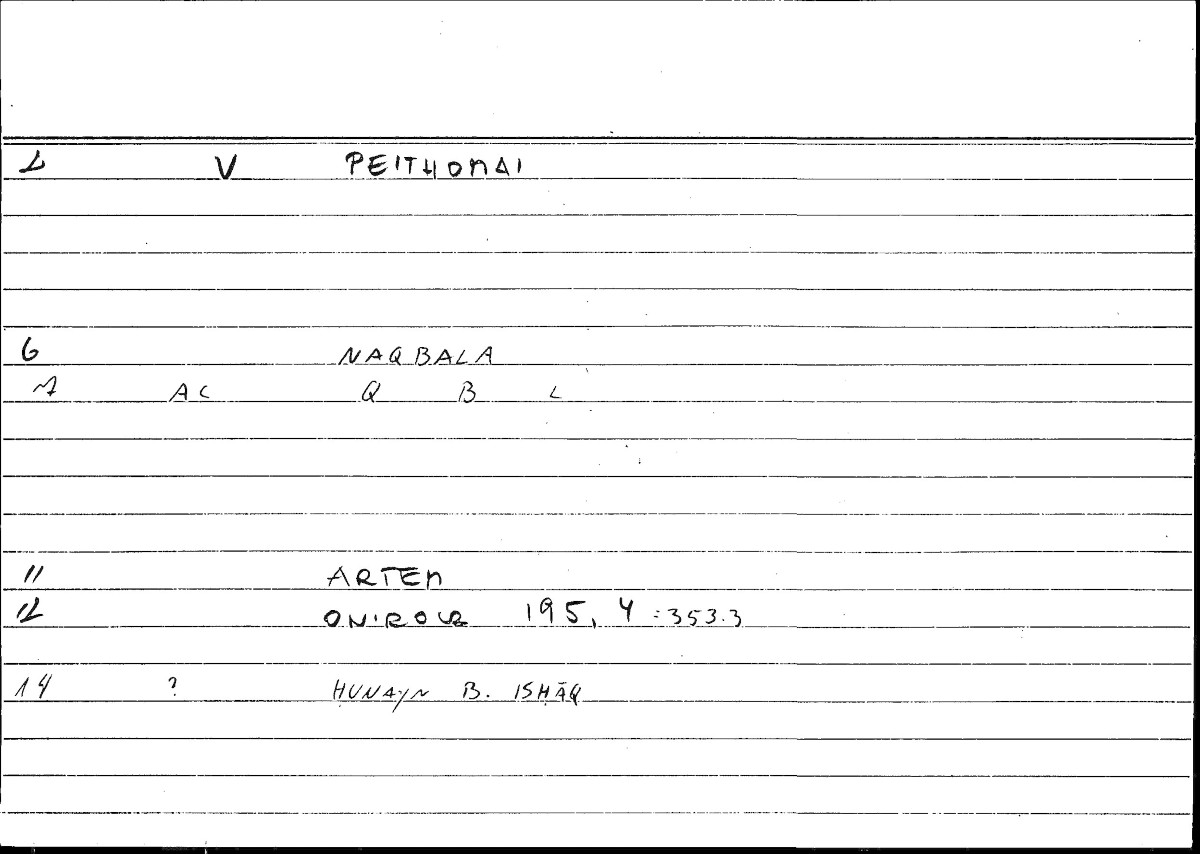 1 V PEITHOMAI
6 NAQBALA
7 AC Q B L
11 ARTEM
12 ONIROCR 195, 4 : 353.3
14 ? ḤUNAYN B. ISḤĀQ